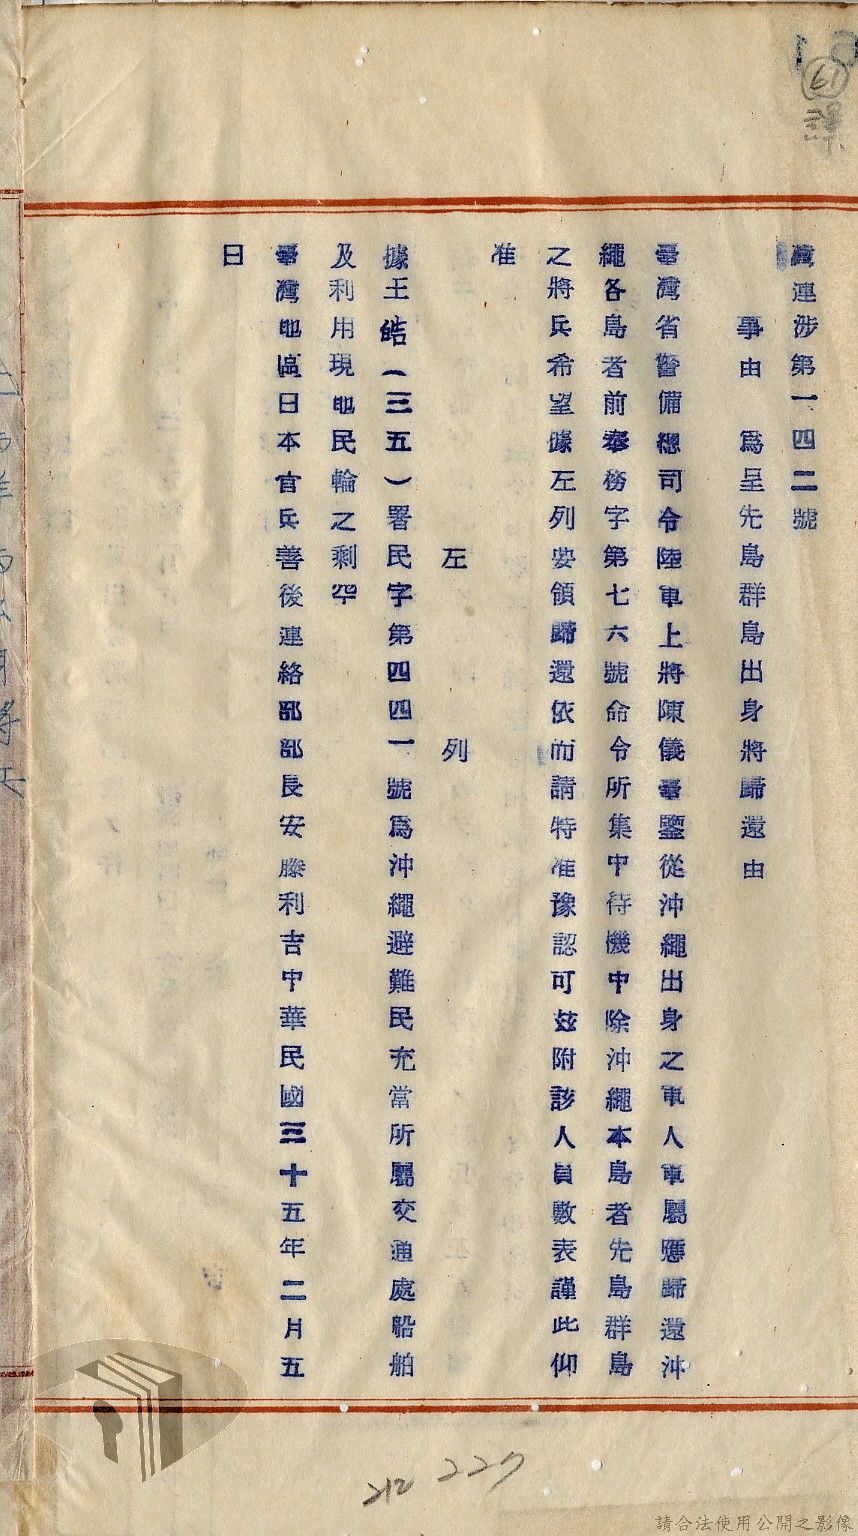 灣連涉第一四二號
事由 為呈先島群島出身將歸還由
臺灣省警備總司令陸軍上將陳儀臺鑒從沖繩出身之軍人軍屬應歸還沖
繩各島者前奉務字第七六號命令所集中待機中除沖繩本島者先島群島
之將兵希望據左列要領歸還依而請特准豫認可玆附該人員數表謹此仰
准
左列
據王皓(三五)署民字第四四一號為沖繩避難民充當所屬交通處船舶
及利用現地民輪之剩空
臺灣地區日本官兵善後連絡部部長安藤利吉中華民國三十五年二月五
日
61
227
請合法使用公開之影像